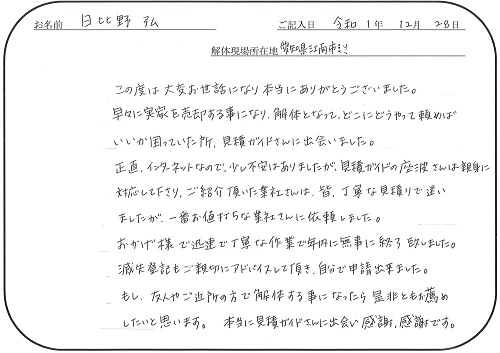 お名前 日比野 弘 ご記入日 令和1年 12月 28日
解体現場所在地 愛知県江南市
この度は大変お世話になり本当にありがとうございました。
早々に実家を売却する事になり、解体となって、どこにどうやって頼めば
いいか困っていた所、見積ガイドさんに出会いました。
正直、インターネットなので、少し不安はありましたが、見積ガイドの座波さんは親身に
対応して下さり、ご紹介頂いた業社さんは、皆、丁寧な見積りで迷い
ましたが、一番お値打ちな業社さんに依頼しました。
おかげ様で迅速で丁寧な作業で年内に無事に終了致しました。
滅失登記もご親切にアドバイスして頂き、自分で申請出来ました。
もし、友人やご近所の方で解体する事になったら是非ともお薦め
したいと思います。 本当に見積ガイドさんに出会い感謝、感謝です。